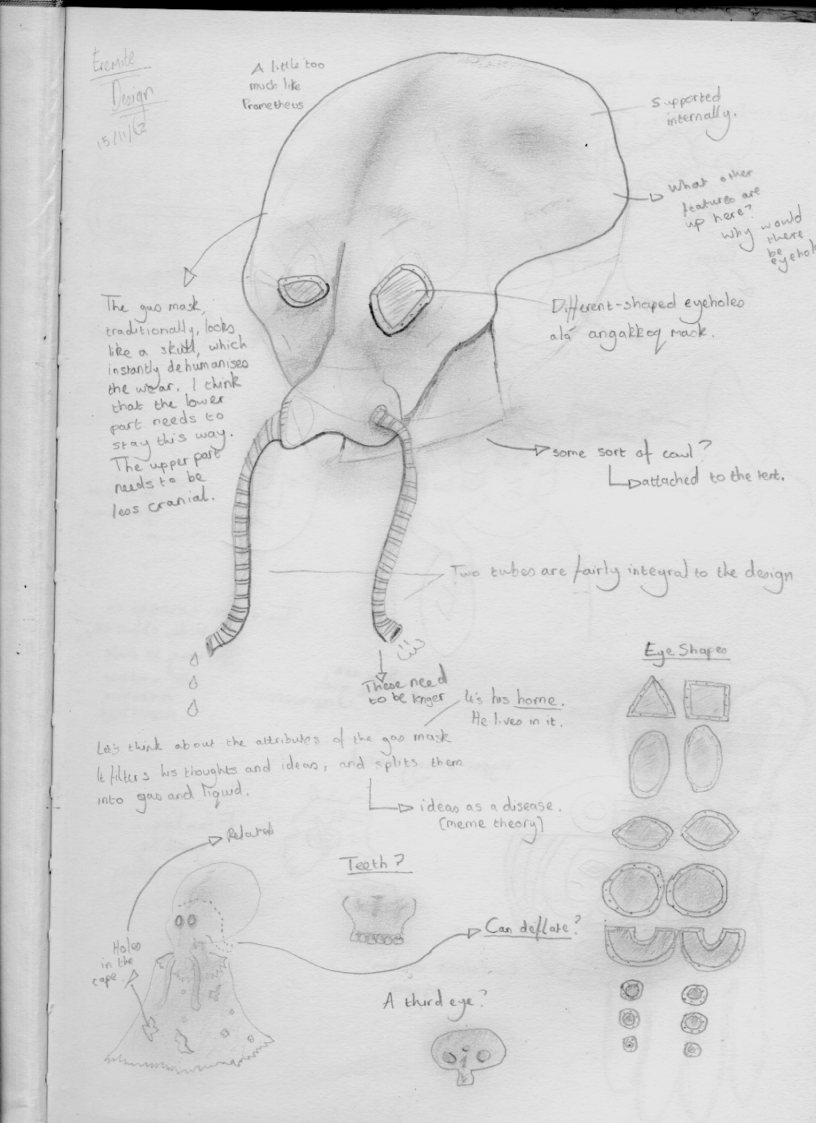 Eremite
Design
15/11/62
A little too
much like
Prometheus
Supported
internally.
What other
features are
up here?
Why would
there
be
eyehol
The gas mask,
traditionally, looks
like a skull, which
instantly dehumanises
the wear. I think
that the lower
part needs to
stay this way.
The upper part
needs to be
less cranial.
Different-shaped eyeholes
alá angakkoq mask.
some sort of cowl?
attached to the tent.
Two tubes are fairly integral to the design
These need
to be longer
It's his home.
He lives in it.
Let's think about the attributes of the gas mask
It filters his thoughts and ideas, and splits them
into gas and liquid.
ideas as a disease.
(meme theory)
Eye Shapes
Related
Holes
in the
cape
Teeth?
Can deflate?
A third eye?